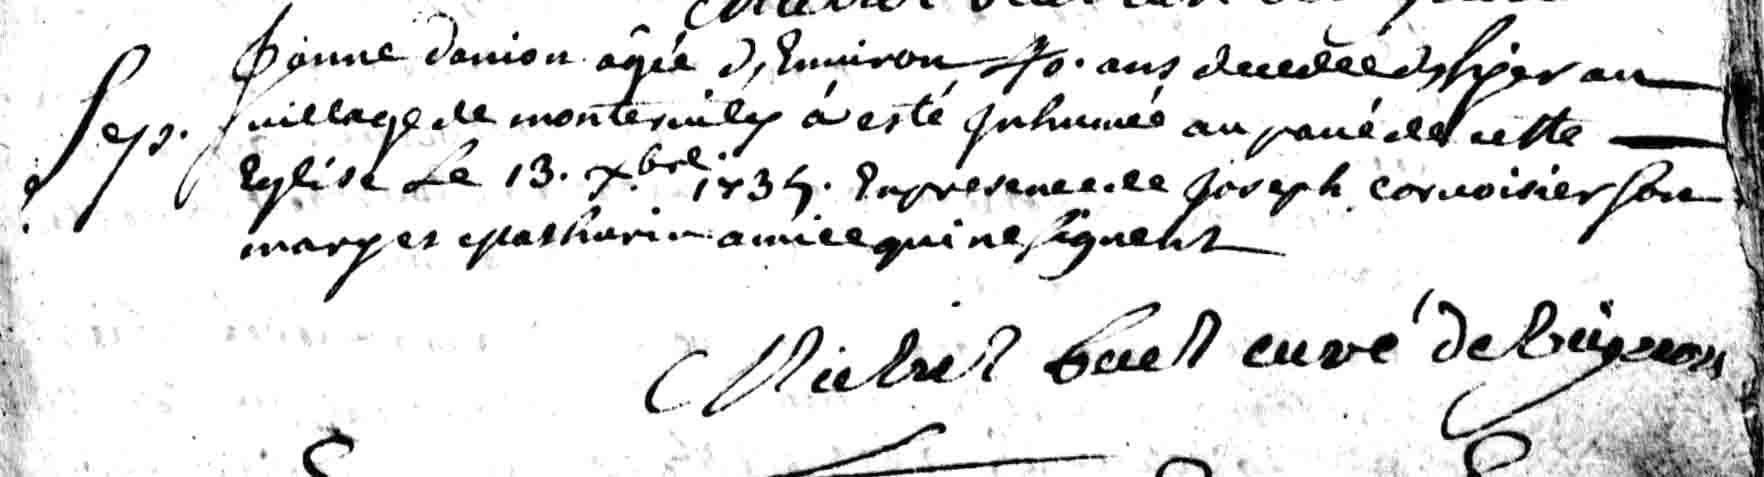 Sep.
Janne danion agée d'Environ 40. ans decedée d'hyer au
village de monte a esté Inhumée au pavé de cette
Eglise Le 13. Xbre. 1735. En presence de Joseph corvoisier son
mary et Mathurin amice qui ne signent
Michel buel curé de